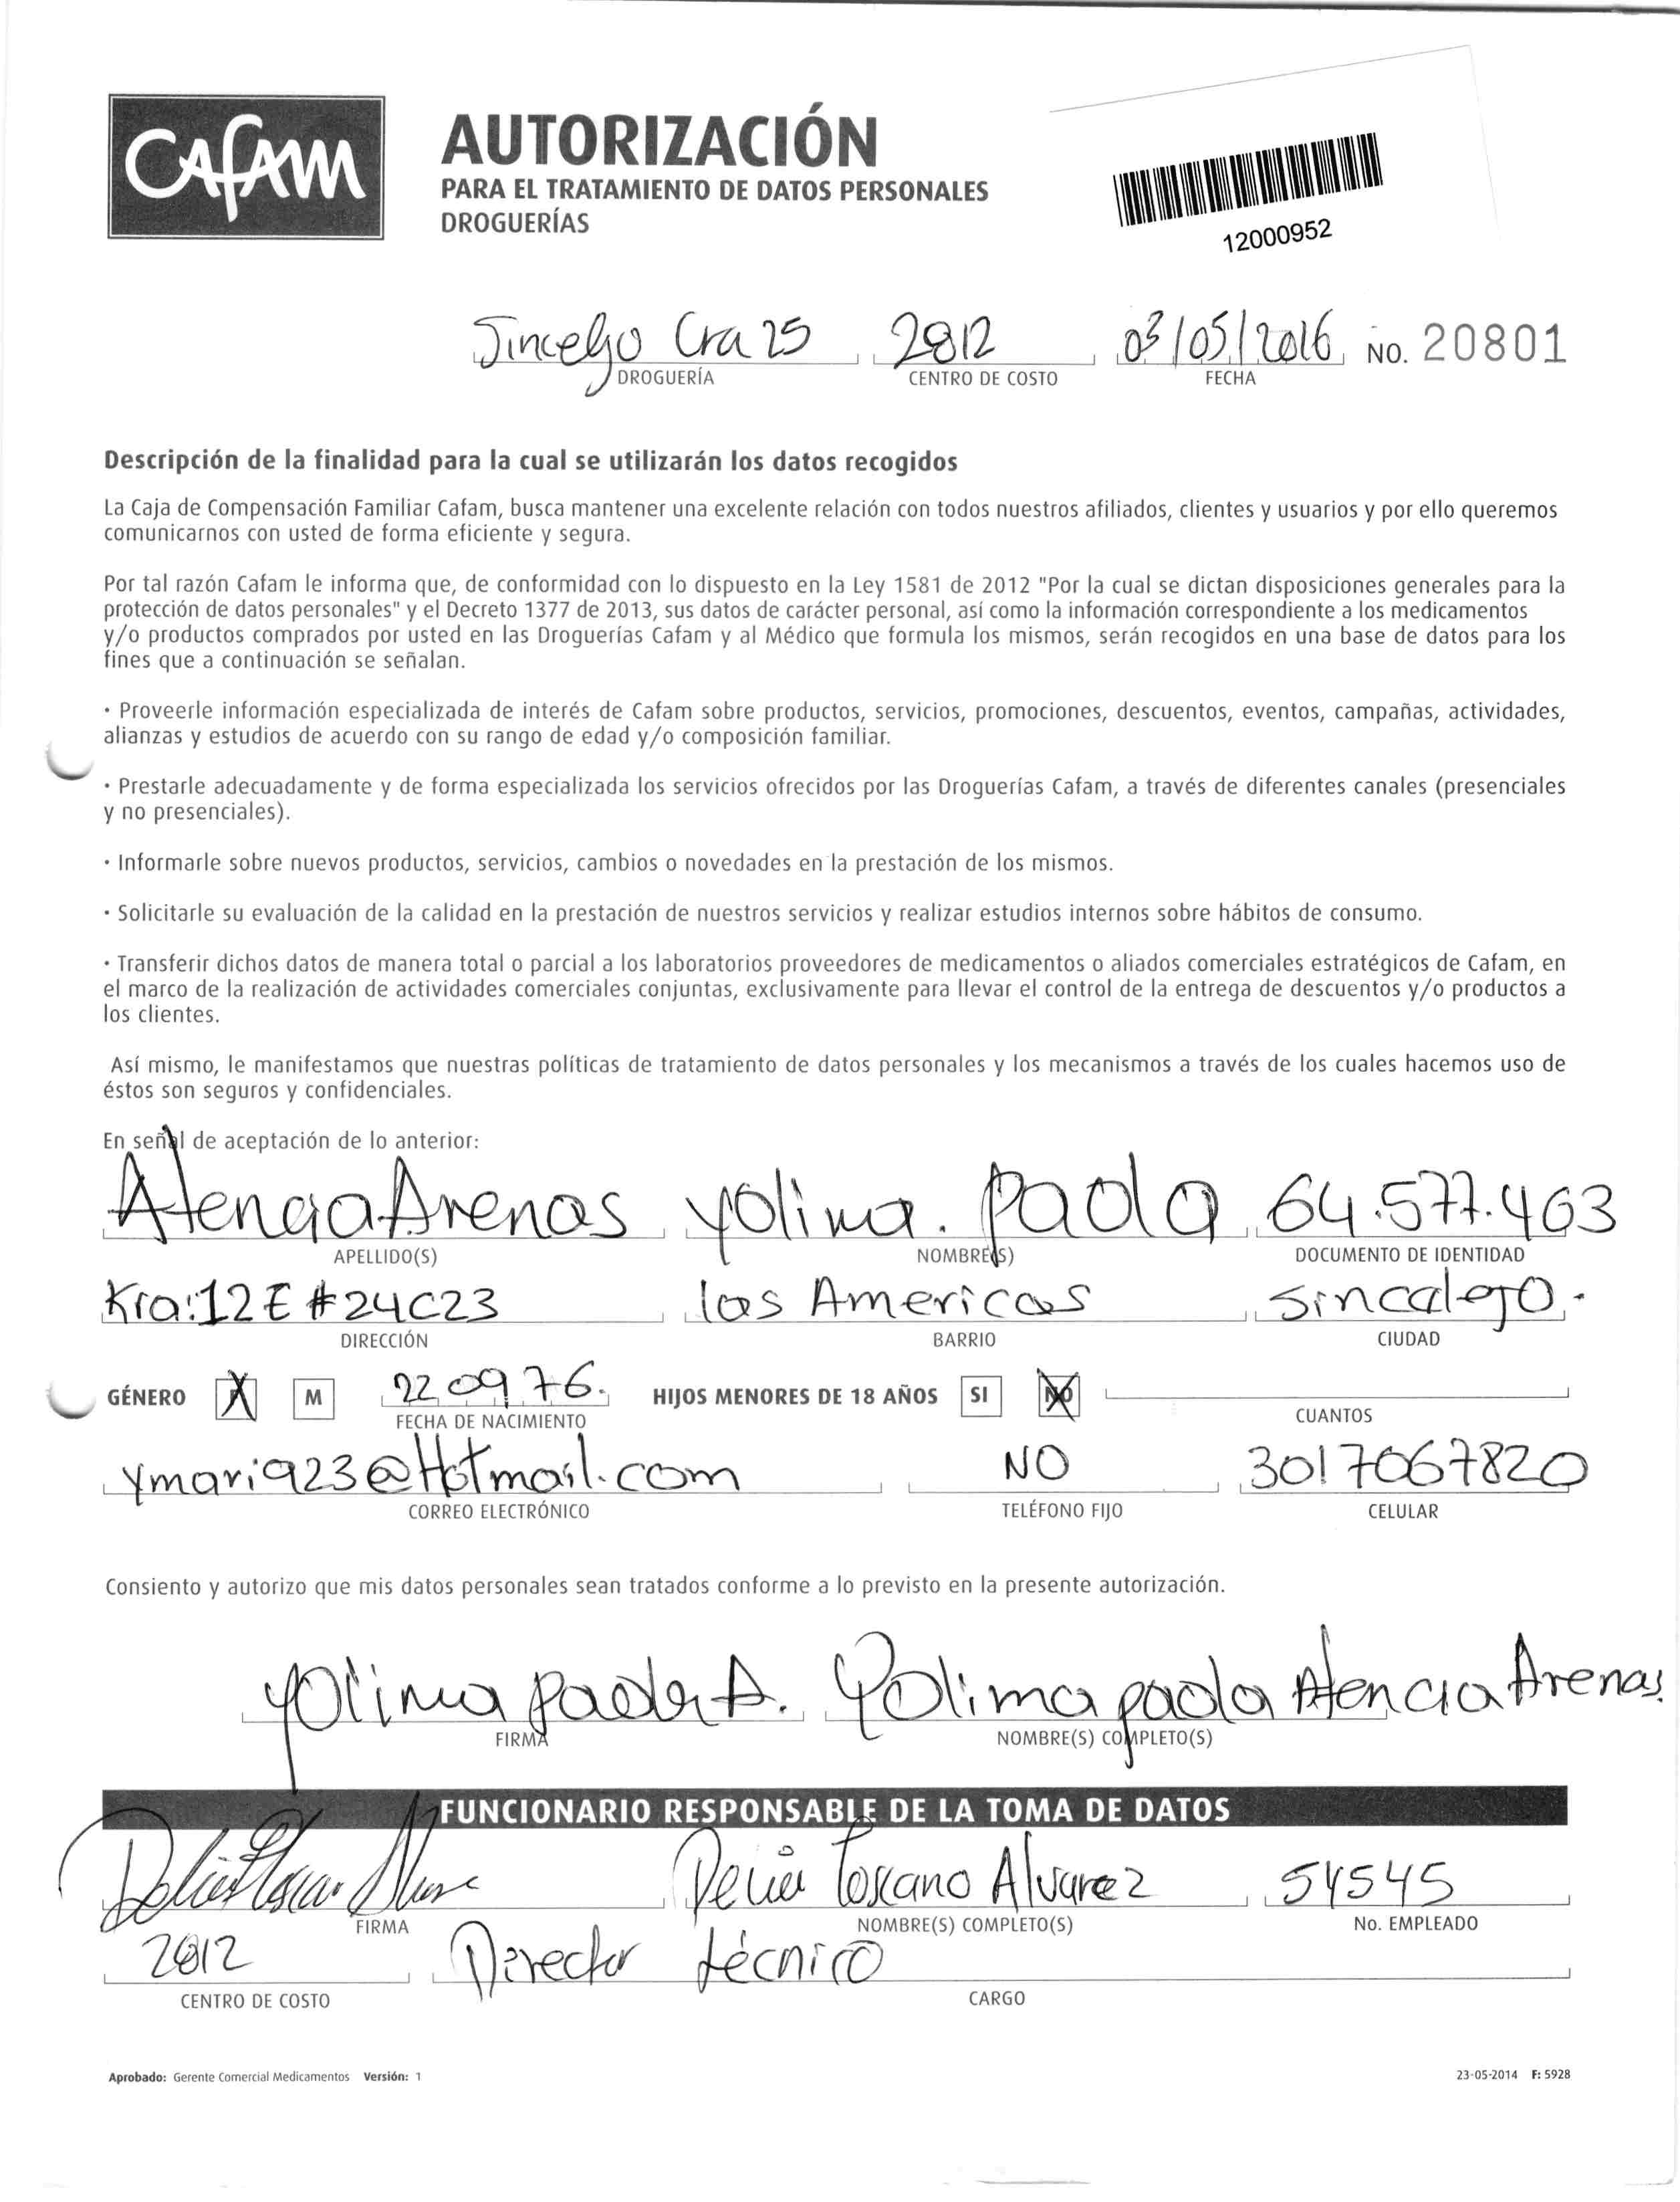 CAFAM
AUTORIZACIÓN
PARA EL TRATAMIENTO DE DATOS PERSONALES
DROGUERÍAS
12000952
Sincelejo Cra 25 2812 03/05/2016 No. 20801
DROGUERÍA CENTRO DE COSTO FECHA
Descripción de la finalidad para la cual se utilizarán los datos recogidos
La Caja de Compensación Familiar Cafam, busca mantener una excelente relación con todos nuestros afiliados, clientes y usuarios y por ello queremos
comunicarnos con usted de forma eficiente y segura.
Por tal razón Cafam le informa que, de conformidad con lo dispuesto en la Ley 1581 de 2012 "Por la cual se dictan disposiciones generales para la
protección de datos personales" y el Decreto 1377 de 2013, sus datos de carácter personal, así como la información correspondiente a los medicamentos
y/o productos comprados por usted en las Droguerías Cafam y al Médico que formula los mismos, serán recogidos en una base de datos para los
fines que a continuación se señalan.
· Proveerle información especializada de interés de Cafam sobre productos, servicios, promociones, descuentos, eventos, campañas, actividades,
alianzas y estudios de acuerdo con su rango de edad y/o composición familiar.
· Prestarle adecuadamente y de forma especializada los servicios ofrecidos por las Droguerías Cafam, a través de diferentes canales (presenciales
y no presenciales).
· Informarle sobre nuevos productos, servicios, cambios o novedades en la prestación de los mismos.
· Solicitarle su evaluación de la calidad en la prestación de nuestros servicios y realizar estudios internos sobre hábitos de consumo.
· Transferir dichos datos de manera total o parcial a los laboratorios proveedores de medicamentos o aliados comerciales estratégicos de Cafam, en
el marco de la realización de actividades comerciales conjuntas, exclusivamente para llevar el control de la entrega de descuentos y/o productos a
los clientes.
Así mismo, le manifestamos que nuestras políticas de tratamiento de datos personales y los mecanismos a través de los cuales hacemos uso de
éstos son seguros y confidenciales.
En señal de aceptación de lo anterior:
Atencia Arenas yolima. paola 64.577.463
APELLIDO(S) NOMBRE(S) DOCUMENTO DE IDENTIDAD
Kra:12E #24C23 las Americas sincelejo.
DIRECCIÓN BARRIO CIUDAD
GÉNERO X M 22 09 76. HIJOS MENORES DE 18 AÑOS SI NO
FECHA DE NACIMIENTO CUANTOS
ymari923@Hotmail.com NO 3017067820
CORREO ELECTRÓNICO TELÉFONO FIJO CELULAR
Consiento y autorizo que mis datos personales sean tratados conforme a lo previsto en la presente autorización.
yolima paola A. Yolima paola Atencia Arenas.
FIRMA NOMBRE(S) COMPLETO(S)
FUNCIONARIO RESPONSABLE DE LA TOMA DE DATOS
Toscano Alvarez 54545
FIRMA NOMBRE(S) COMPLETO(S) No. EMPLEADO
2812 Director técnico
CENTRO DE COSTO CARGO
Aprobado: Gerente Comercial Medicamentos Versión: 1 23-05-2014 F: 5928